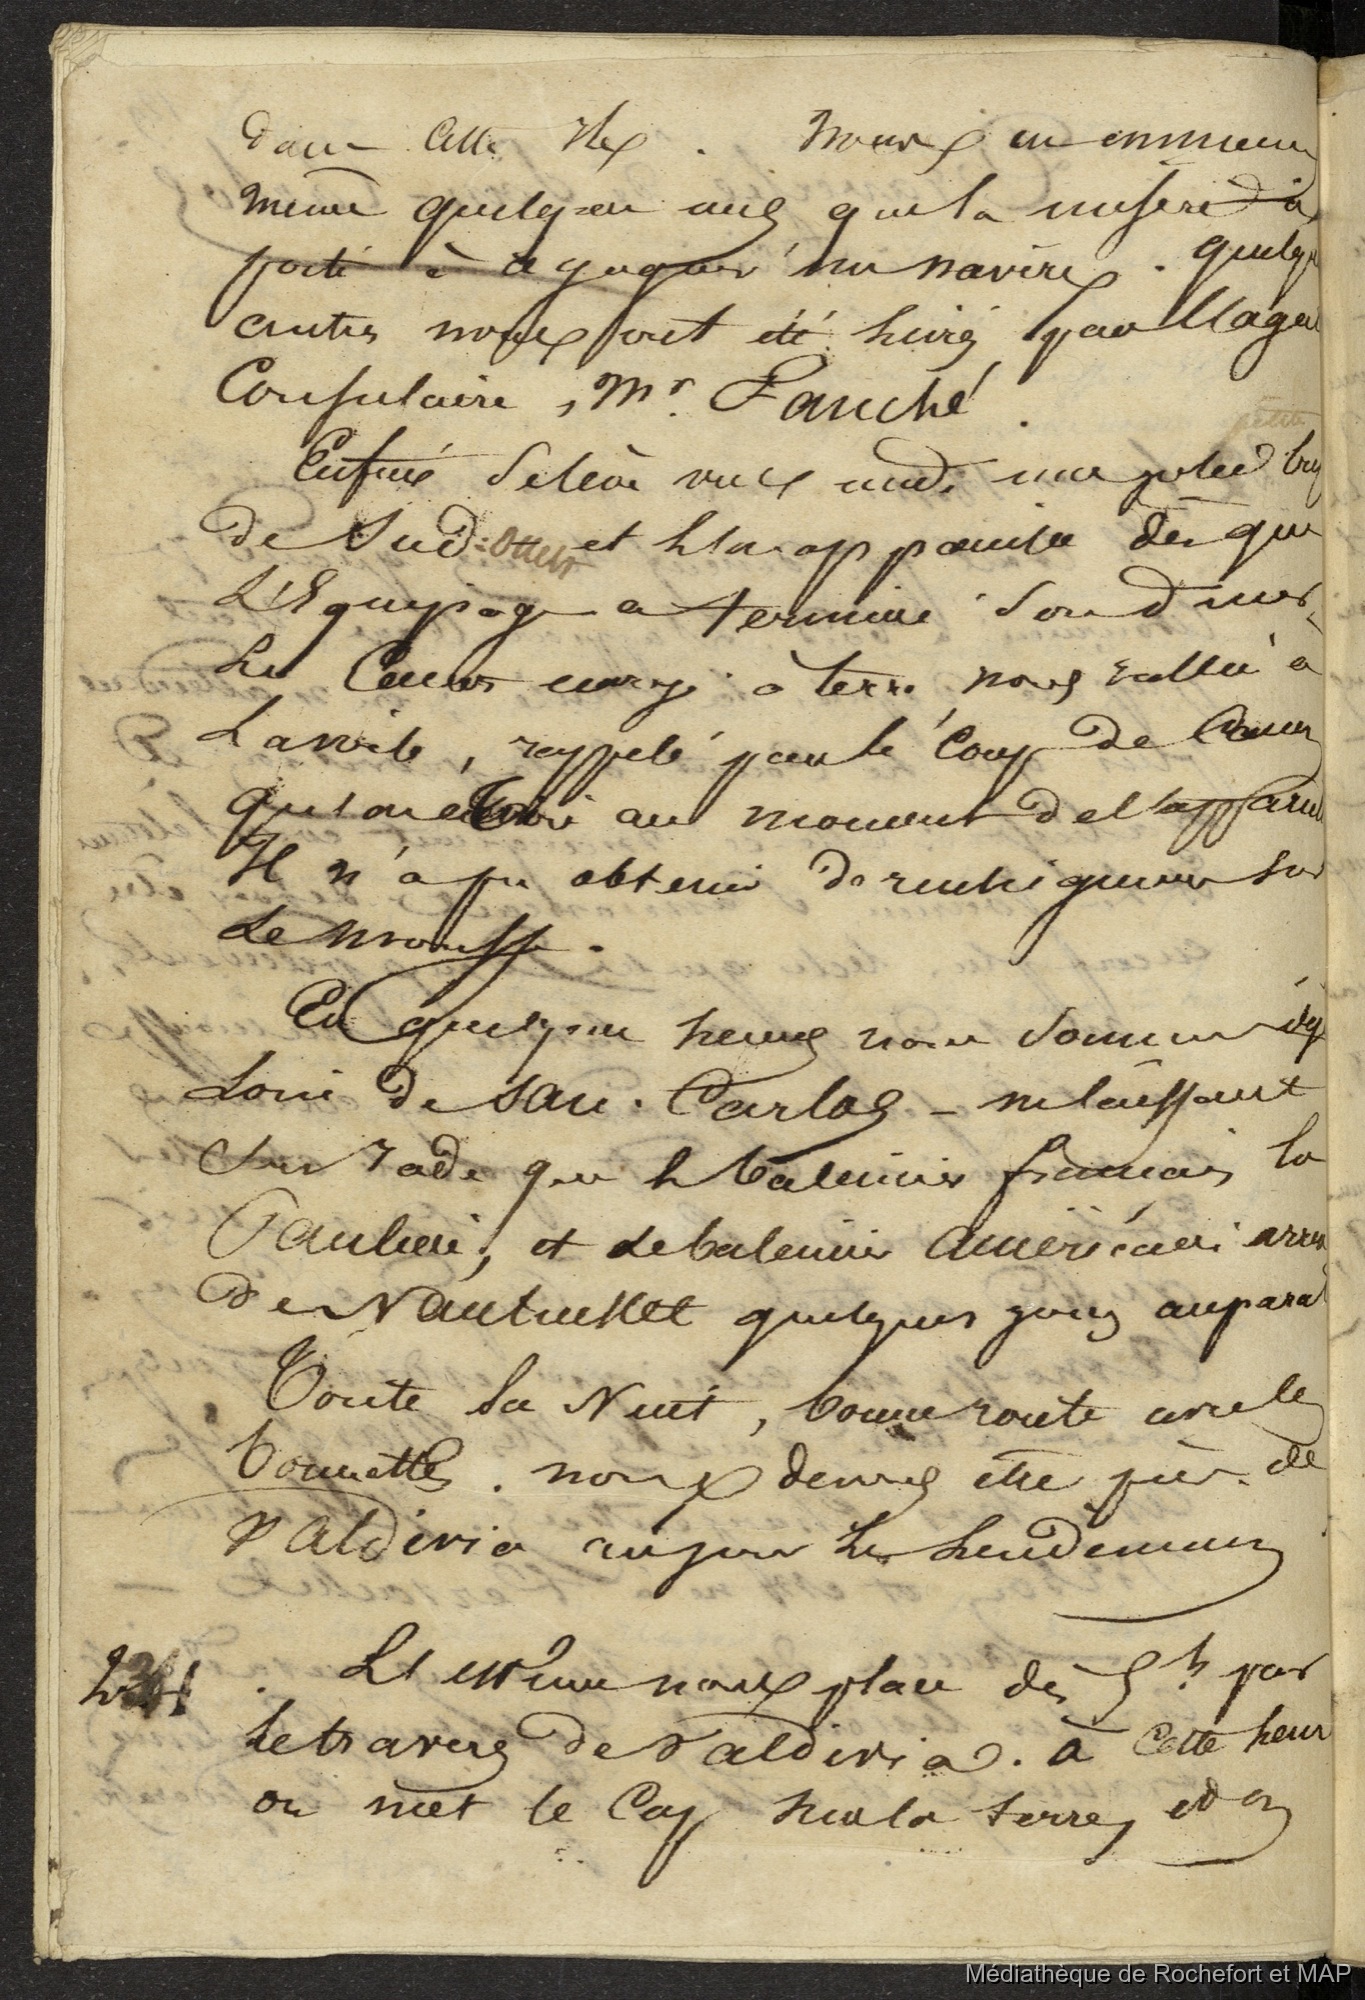 dans cette Ile. Nous en emmenons
même quelques uns que la misère a
porté à regagner un navire. quelqu
autres nous ont été livrés par l'agent
Consulaire, Mr. Fauché.
Enfin s'élève vers midi une jolie petite bri
de Sud-Ouest et l'on appareille dès que
L'Equipage a terminé son diner.
Le Canot envoyé à terre nous rallie a
La voile, rappelé par le Coup de Canon
qu'on a tiré au moment de l'appareil
Il n'a pu obtenir de renseignemens sur
Le mousse.
En quelques heures nous sommes déjà
Loin de San-Carlos - ne laissant
Sur rade que le baleinier français la
Pauline, et le baleinier Américain arrivé
de Nantucket quelques jours aupara
Toute la Nuit, bonne route avec les
bonnettes. nous devons être près de
Valdivia au jour le lendemain
23 . L'estime nous place dès 5h. par
le travers de Valdivia. à Cette heure
on met le Cap sur la terre, et on